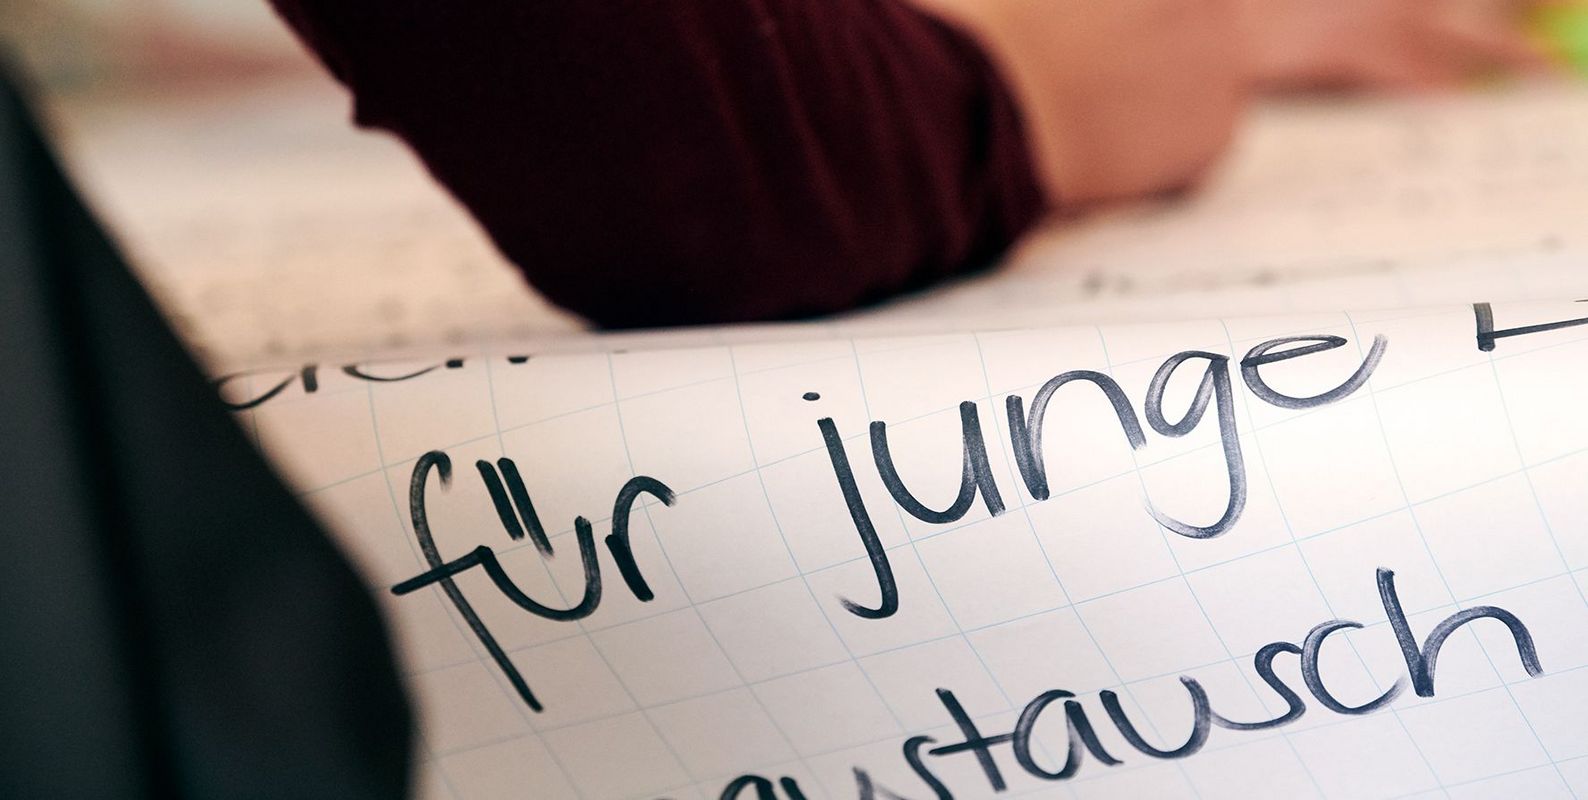 für junge
austausch